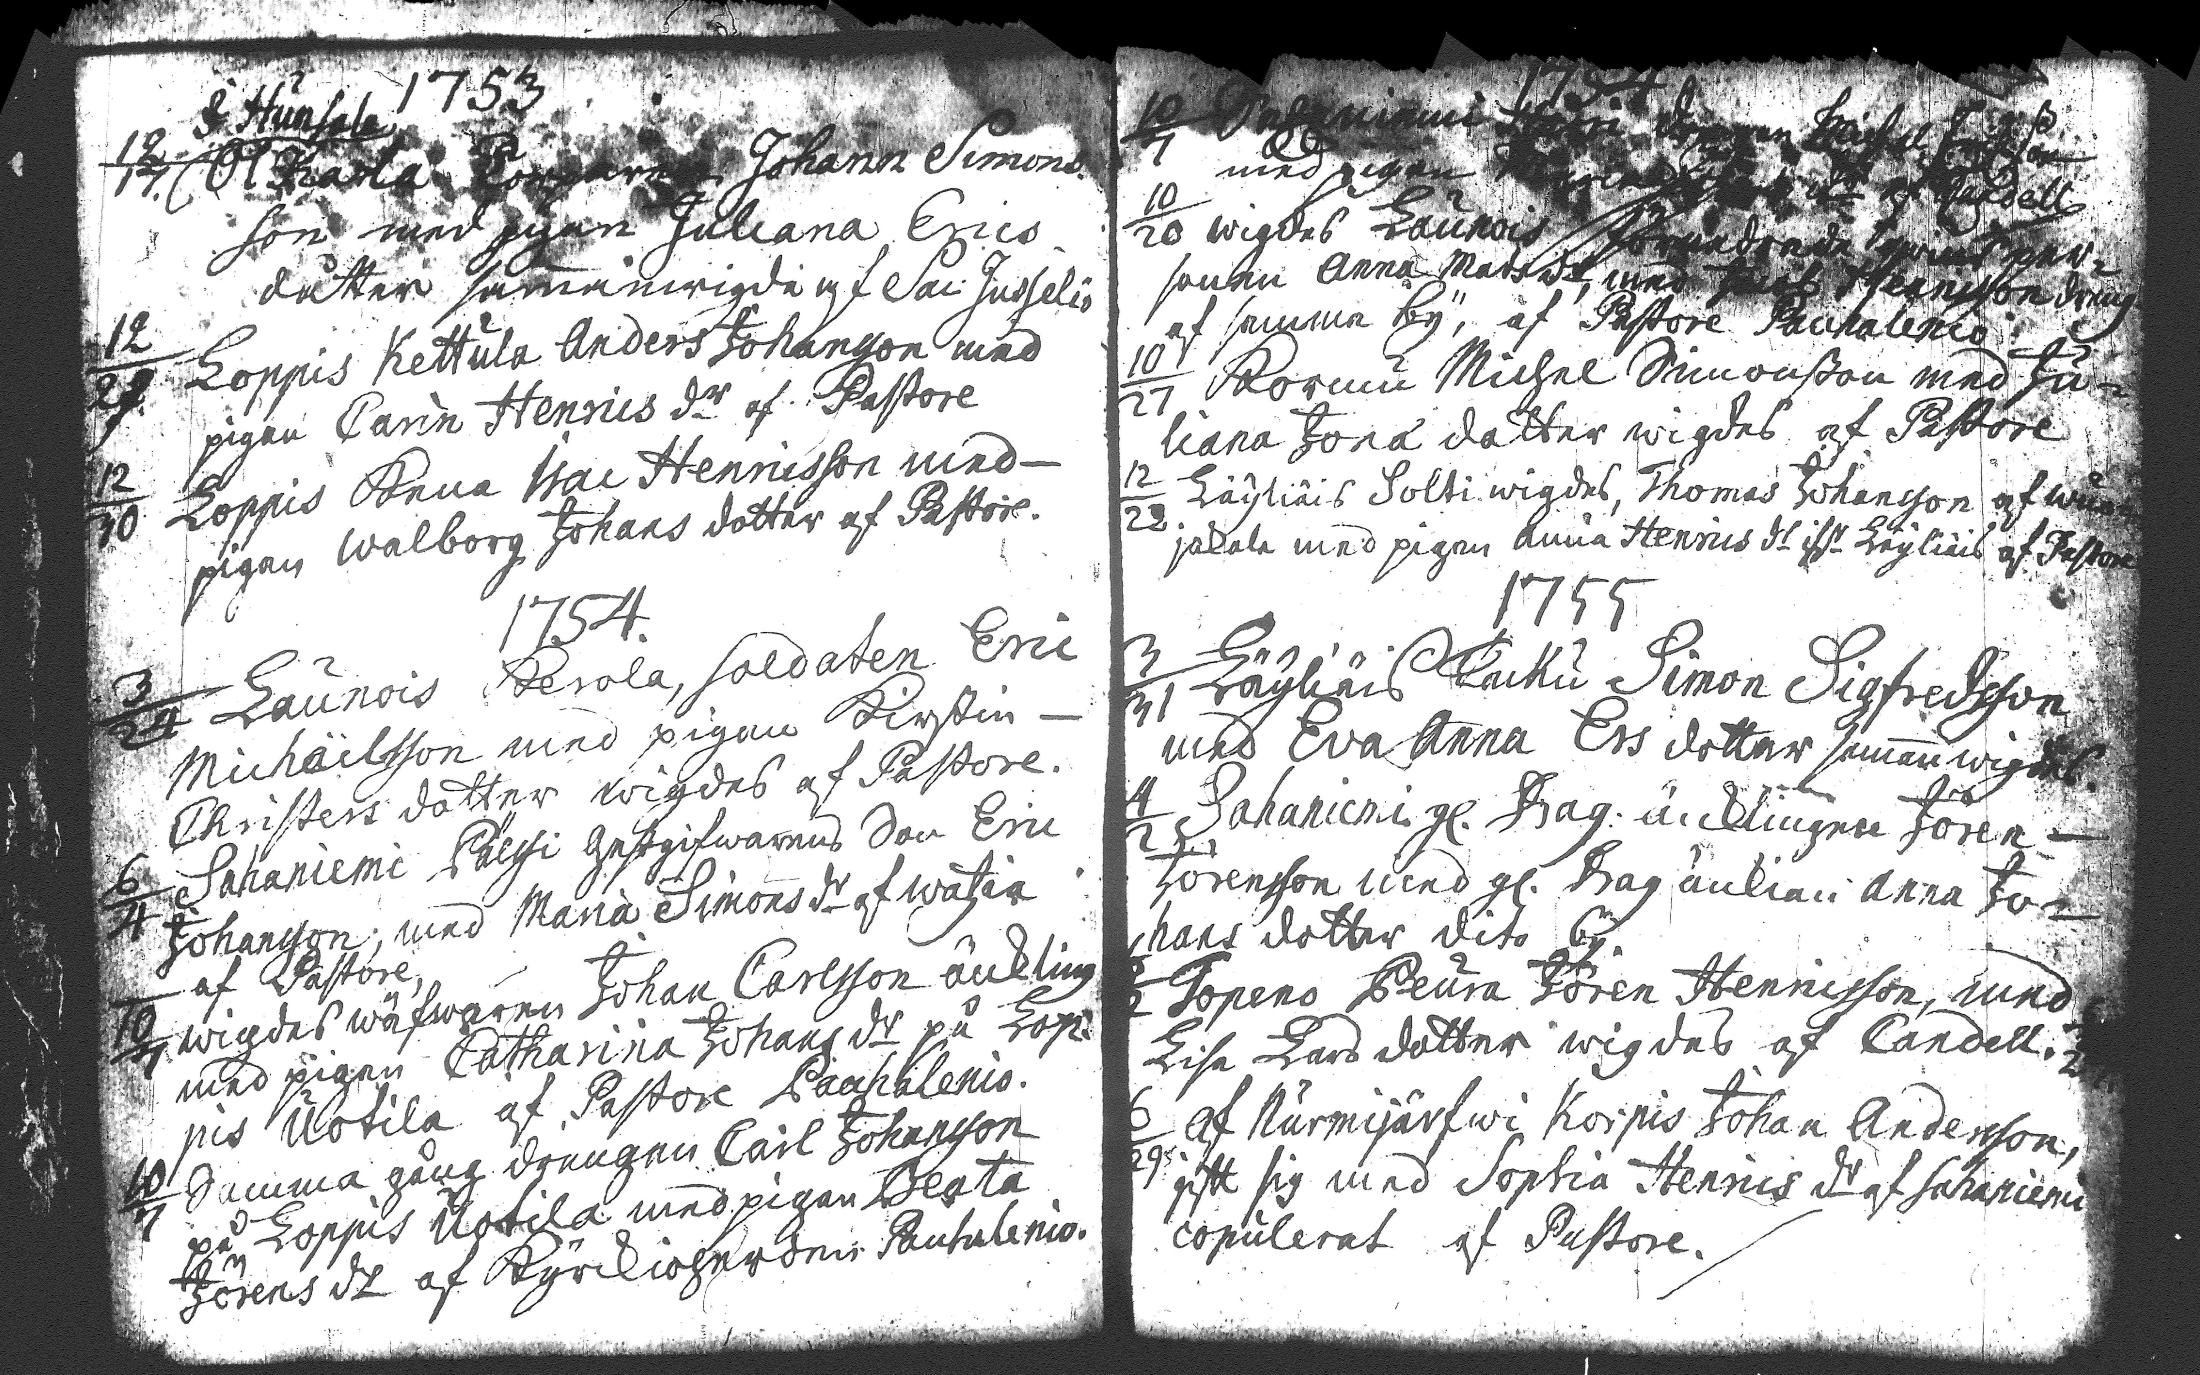 1753
I Hunsala
12/17 Ol Karla Johann Simons
son med pigan Juliana Erics
dotter sammanwigde af Sac: Jusselio
12/27 Loppis Kettula Anders Johansson med
pigan Carin Henrics dr af Pastore
12/30 Loppis Knua Isac Henricsson med
pigan Walborg Johans dotter af Pastore.
1754.
3/24 Launois Perola, soldaten Eric
Michäelsson med pigan Kirstin
Christers dotter wigdes af Pastore.
6/4 Sahaniemi Pälssi gästgifwarens Son Eric
Johansson, med Maria Simons dr af
af Pastore,
10/7 wigdes wäfwaren Johan Carlsson änckling
med pigan Catharina Johans dr på Lop-
pis Uotila af Pastore Pauhalenio.
10/7 Samma gång drengen Carl Johansson
på Loppis Uotila med pigan Beata
Jörens dr af Pauhalenio.
1754
10/7 Sahaniemi drengen Michel
med pigan af Candell
10/20 wigdes Launois qwins per-
sonen Anna Mats dr, med Henricsson dreng
af samma by, af Pastore Pauhalenio
10/27 Kormu Michel Simonsson med Ju-
liana Jona dotter wigdes af Pastore
12/22 Läyliäis Solti wigdes, Thomas Johansson af
jakala med pigan Anna Henrics dr ifr. Läyliäis af Pastore
1755
3/31 Läyliäis Simon Sigfredsson
med Eva Anna Ers dotter samman wigdes.
4/2 Sahaniemi gl. Drag. äncklingen Jören
Jörensson med gl. Drag änkian Anna Jo-
hans dotter dito by.
Topeno Peura Jören Henricsson, med
Lisa Lars dotter wigdes af Candell.
6/29 Af Nurmijärfwi Korpis Johan Andersson,
gift sig med Sophia Henrics dr af Sahaniemi
copulerat af Pastore.